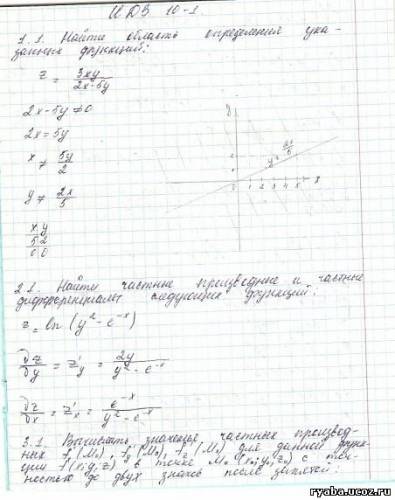 ИДЗ 10-1
1.1. Найти область определения ука-
занных функций:
z = 3xy / 2x-5y
2x-5y ≠ 0
2x = 5y
x ≠ 5y/2
y ≠ 2x/5
x y
5 2
0 0
y
y = 2x/5
0 1 2 3 4 5 x
2.1. Найти частные производные и частные
дифференциалы следующих функций:
z = ln (y² - e^-x)
∂z/∂y = z'y = 2y / y² - e^-x
∂z/∂x = z'x = e^-x / y² - e^-x
3.1. Вычислить значения частных производ-
ных f'x (M₀), f'y (M₀), f'z (M₀) для данной функ-
ции f(x;y;z) в точке M₀ (x₀;y₀;z₀) с точ-
ностью до двух знаков после запятой:
ryaba.ucoz.ru